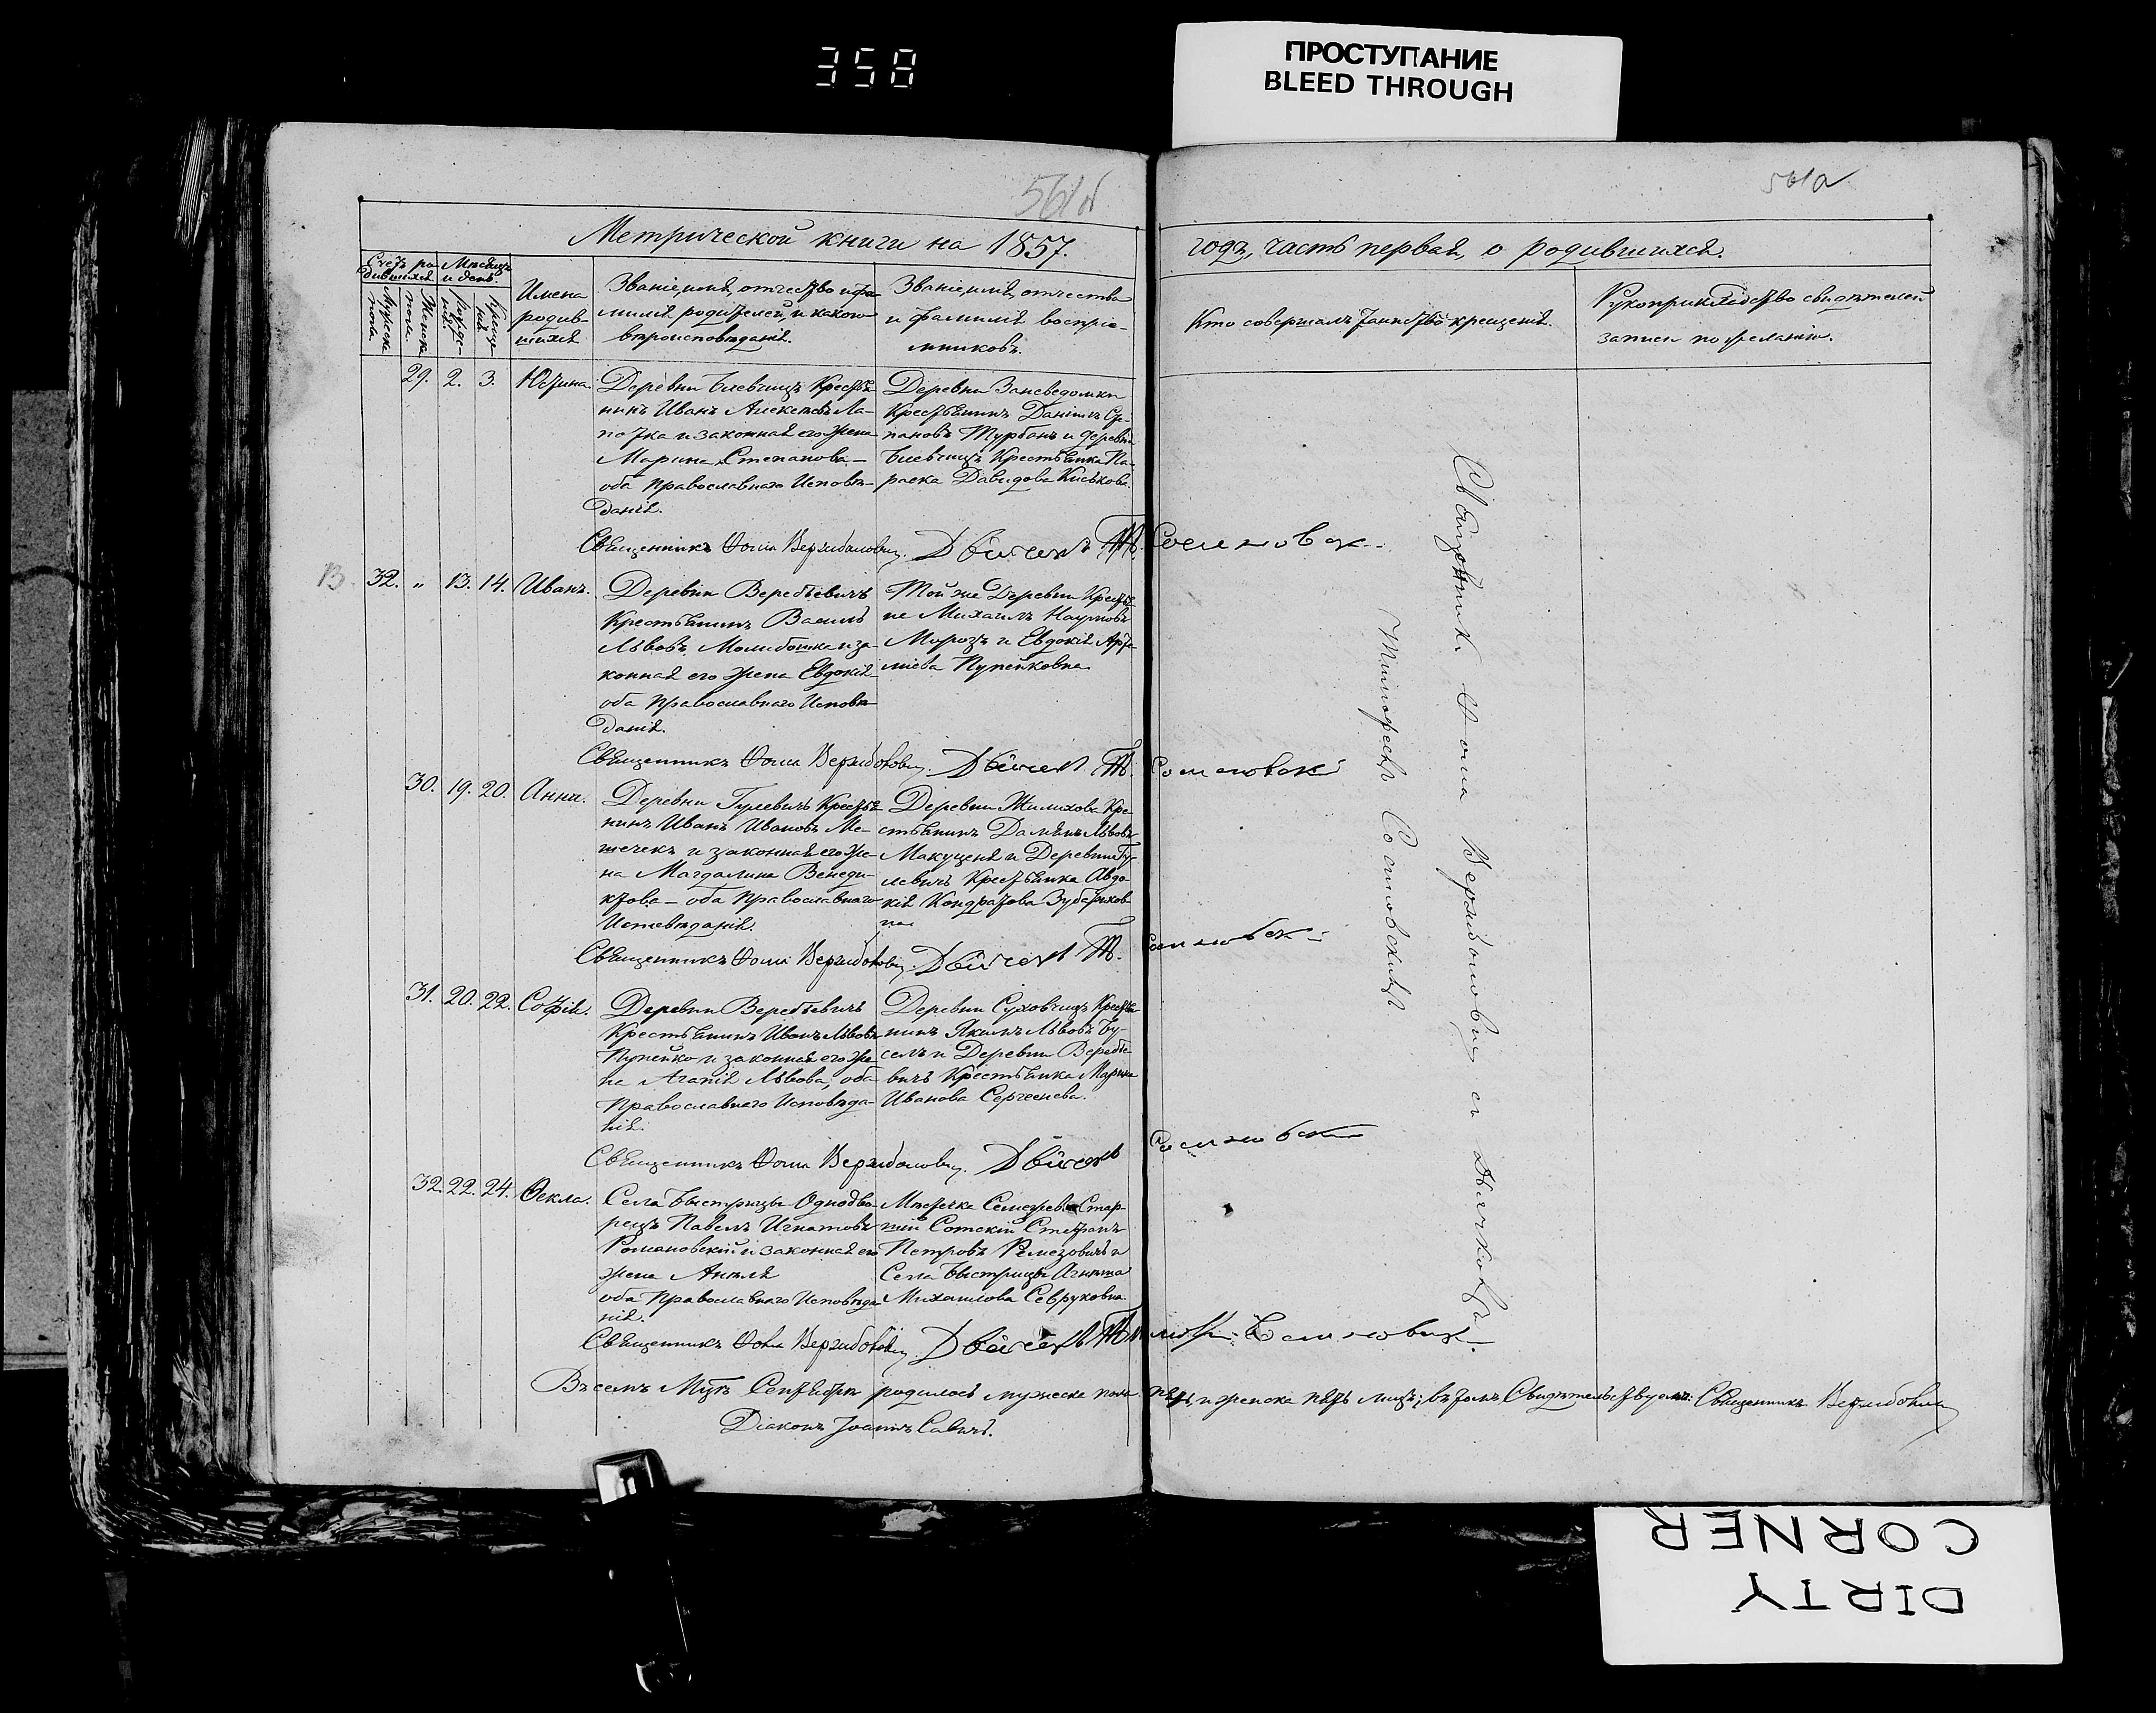 358
ПРОСТУПАНИЕ
BLEED THROUGH
561б
561а
Метрической книги на 1857.
годъ, часть первая, о родившихся.
Счетъ ро-
дившихся
Мѣсяцъ
и день.
Мужеска
пола.
Женска
пола.
Рожде-
нія.
Креще-
нія.
Имена
родив-
шихся
Званіе, имя, отчество и фа-
милія родителей, и какого
вѣроисповѣданія.
Званіе, имя, отчество
и фамилія воспріе-
мниковъ.
Кто совершалъ таинство крещенія.
Рукоприкладство свидѣтелей
записи по желанію.
29. 2. 3. Юстина.
Деревни Блевчицъ Крестья
нинъ Иванъ Алексѣевъ Ла-
потка и законная его жена
Марина Степанова —
оба православнаго Исповѣ-
данія.
Деревни
Крестьянинъ Даніилъ Сте-
пановъ Турбанъ и деревни
Блевчицъ Крестьянка Па-
раска Давидова
Священникъ Ѳома Вержболовичъ. Дьячекъ Т. Сосиновск
13. 32. „ 13. 14. Иванъ.
Деревни Веребьевичъ
Крестьянинъ Василь
Львовъ и за-
конная его жена Евдокія
оба Православнаго Исповѣ-
данія.
Той же Деревни Крестья
не Михаилъ Наумовъ
Морозъ и Евдокія Арте
міева Пупейковна
Священникъ Ѳома Вержболовичъ. Дьячекъ Т. Сосиновск
30. 19. 20. Анна.
Деревни Гулевичъ Крестья
нинъ Иванъ Ивановъ Ме-
шечекъ и законная его же-
на Магдалина Венеди-
ктова — оба Православнаго
Исповѣданія.
Деревни Жилихова Кре-
стьянинъ Даміянъ Львовъ
Макуценя и Деревни Гу
левичъ Крестьянка Авдо
кія Кондратова
на
Священникъ Ѳома Вержболовичъ. Дьячекъ Т. Сосиновск
31. 20. 22. Софія.
Деревни Веребьевичъ
Крестьянинъ Иванъ Львовъ
Пупейко и законная его же-
на Агапія Львова, оба
Православнаго Исповѣда-
нія.
Деревни Суховчицъ Крестья
нинъ Якимъ Львовъ Бу-
селъ и Деревни Веребье
вичъ Крестьянка Марина
Иванова Сергеенева.
Священникъ Ѳома Вержболовичъ. Дьячекъ Сосиновск
32. 22. 24. Ѳекла.
Села Быстрицы Однодво-
рецъ Павелъ Игнатовъ
Романовскій и законная его
жена Анеля
оба Православнаго Исповѣда
нія.
Мѣстечка Семежева Стар-
шій Сотскій Стефанъ
Петровъ Ремезовичъ и
Села Быстрицы Агнета
Михаилова Севруковна
Священникъ Ѳома Вержболовичъ. Дьячекъ Тимоѳ. Сосиновск
Священникъ Ѳома Вержболовичъ съ Дьячкомъ
Тимофеемъ Сосиновскимъ
Въ семъ Мцѣ Сентябрѣ родилось мужеска пола пять, и женска пять лицъ; въ томъ Свидѣтельствуемъ: Священникъ Вержболовичъ
Діаконъ Іоаннъ Савичъ.
DIRTY
CORNER